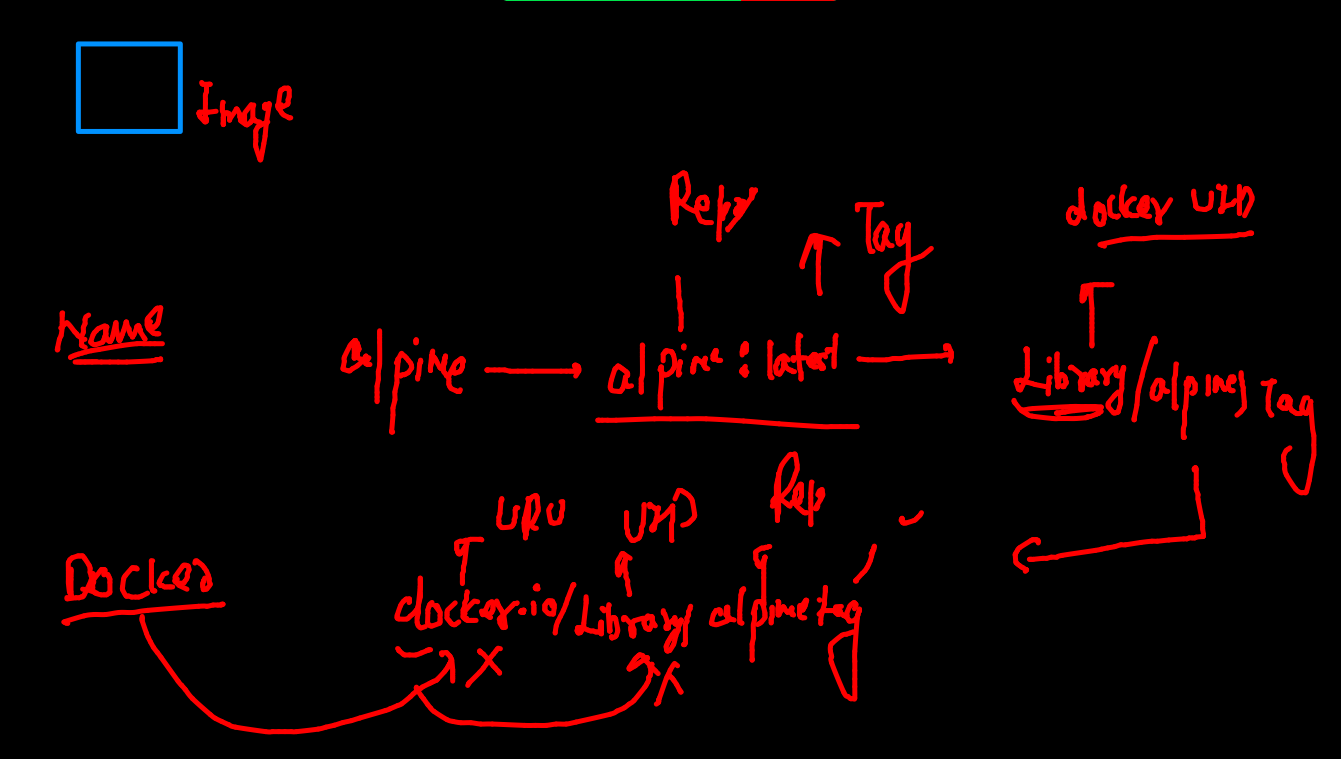 Image
Repo
Tag
docker UID
Name
alpine → alpine:latest → Library/alpine:Tag
URL UID Rep
Docker
docker.io/Library/alpine:tag
X X